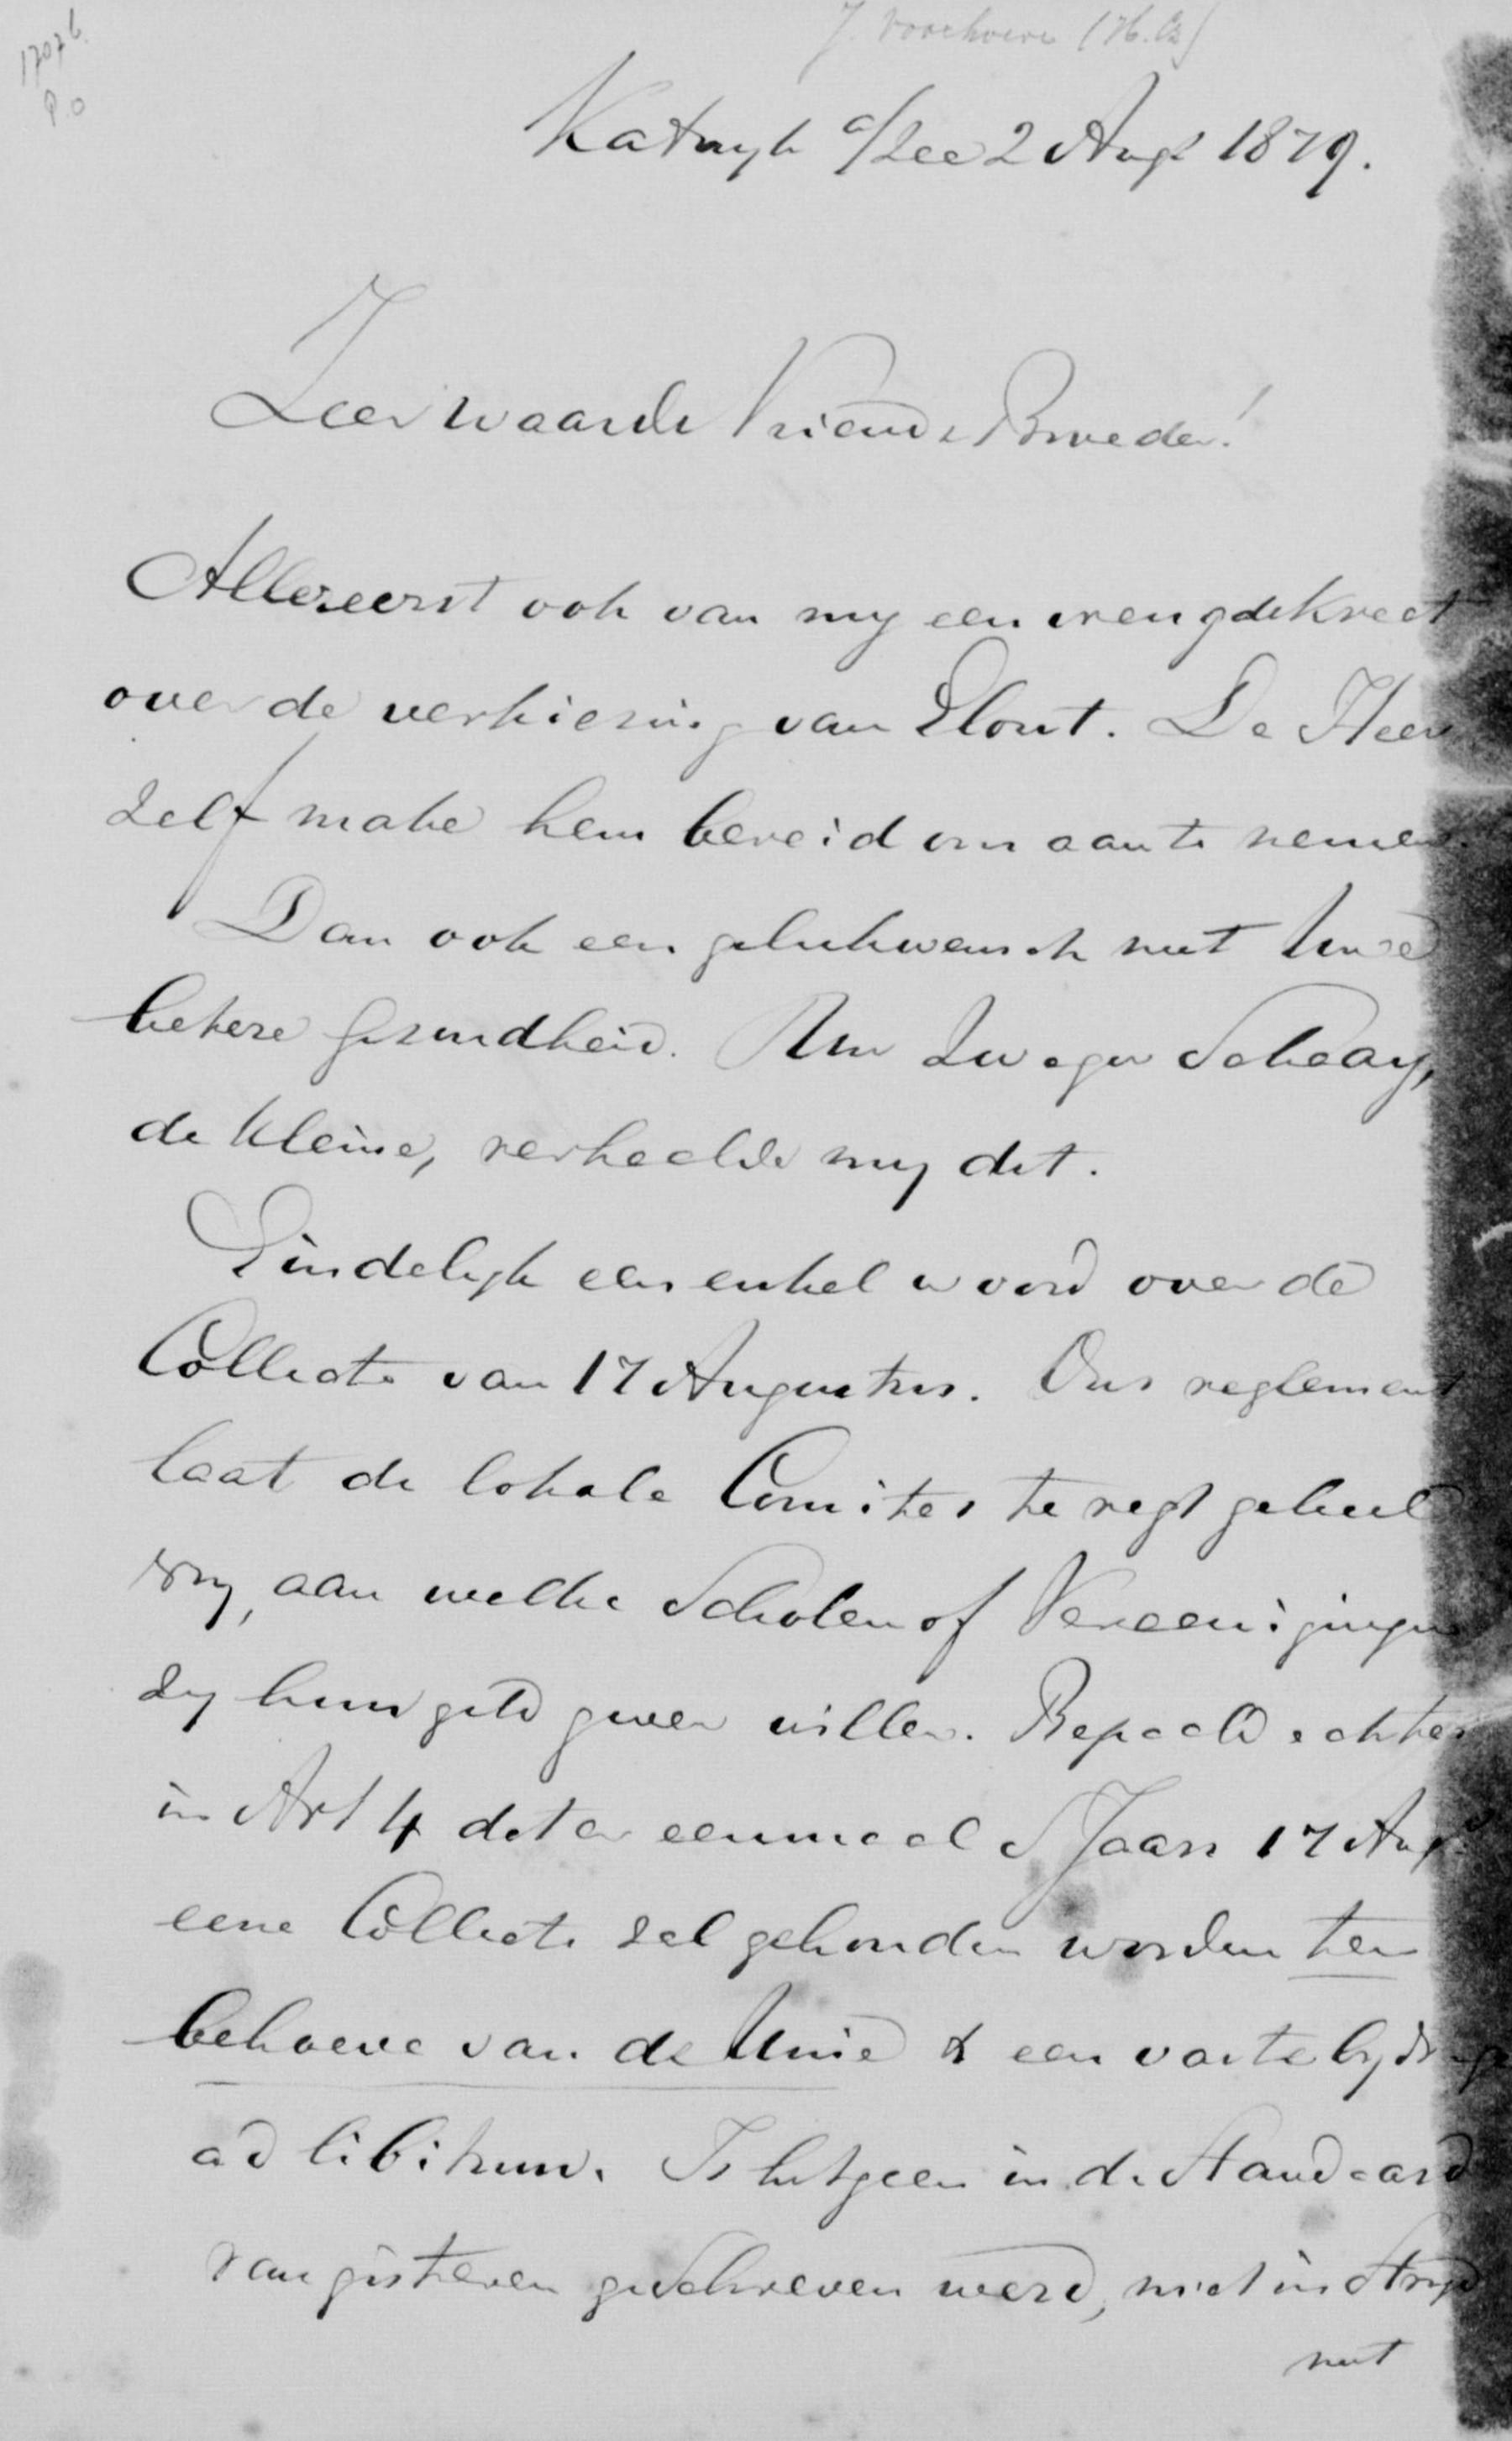 17076.
P.O
J. Voorhoeve (H.Cz)
Katwyk a/Zee 2 Augt 1879.
Zeer waarde Vriend & Broeder!
Allereerst ook van my een vreugdekreet
over de verkiezing van Elout. De Heer
zelf make hem bereid om aan te nemen.
Dan ook een gelukwensch met Uwe
betere gezondheid. Uw Zwager Schaay,
de kleine, verhaalde my dit.
Eindelyk een enkel woord over de
Collecte van 17 Augustus. Ons reglement
laat de lokale Comites te regt geheel
vry, aan welke Scholen of Vereenigingen
zy hun geld geven willen. Bepaald echter
in Art 4 dat er eenmaal s Jaars 17 Augs
eene Collecte zal gehouden worden ten
behoeve van de Unie & een vaste bydrage
ad libitum. Is hetgeen in de Standaard
van gisteren geschreven werd, niet in Stryd
met